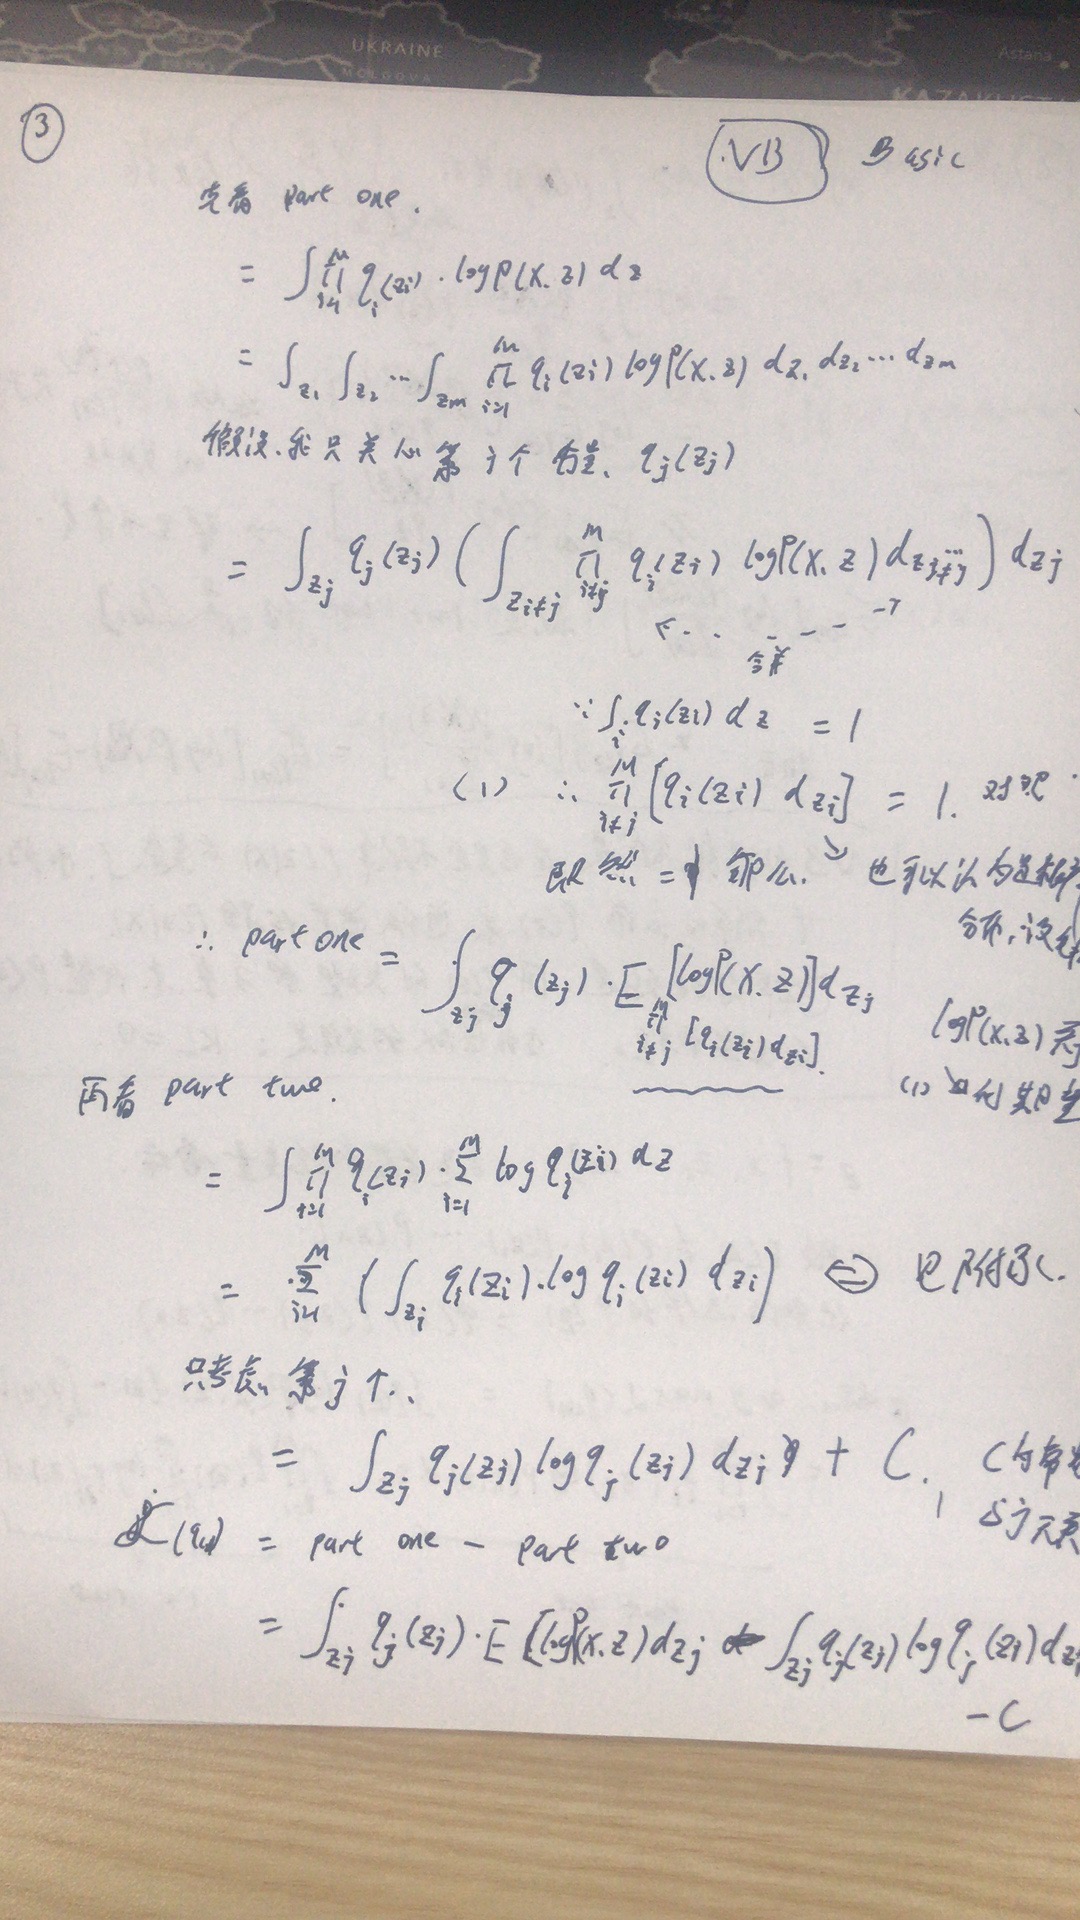 UKRAINE
MOLDOVA
Astana
KAZAKHSTA
③
VB Basic
先看 part one.
= ∫∏_{i=1}^{M} q_i(z_i) · log P(X, z) dz
= ∫_{z_1} ∫_{z_2} ⋯ ∫_{z_m} ∏_{i=1}^{M} q_i(z_i) log P(X, z) dz_1 dz_2 ⋯ dz_m
假设, 我只关心第 j 个 q_j(z_j)
= ∫_{z_j} q_j(z_j) ( ∫_{z_{i≠j}} ∏_{i≠j}^{M} q_i(z_i) log P(X, z) d ) dz_j
合并
∵ ∫_i q_i(z_i) dz = 1
(1) ∴ ∏_{i≠j}^{M} [q_i(z_i) dz_i] = 1.
既然 = 1 那么. 也可以认为是概率
分布, 设
∴ part one = ∫_{z_j} q_j(z_j) · E_{∏_{i≠j}^{M} [q_i(z_i) dz_i]} [log P(X, Z)] dz_j
log P(X, z)
(1) 期望
再看 part two.
= ∫∏_{i=1}^{M} q_i(z_i) · Σ_{i=1}^{M} log q_i(z_i) dz
= Σ_{i=1}^{M} ( ∫_{z_i} q_i(z_i) · log q_i(z_i) dz_i ) ⇔ 见附录.
只考虑 第 j 个..
= ∫_{z_j} q_j(z_j) log q_j(z_j) dz_j + C. C为常
与 j 无关
= part one - part two
= ∫_{z_j} q_j(z_j) · E [log P(X, Z) dz_j ∫_{z_j} q_j(z_j) log q_j(z_j) dz
- C